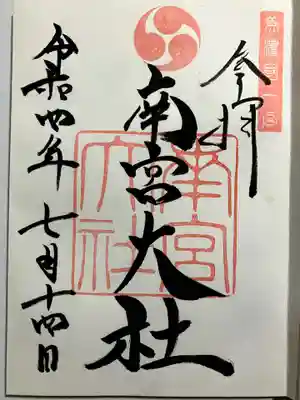 美濃國一宮
奉拝
南宮大社
南宮大社
令和四年七月十四日